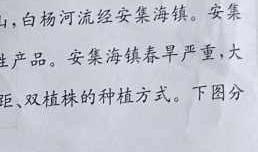 山,白杨河流经安集海镇。安集
产品。安集海镇春旱严重,大
距、双植株的种植方式。下图分